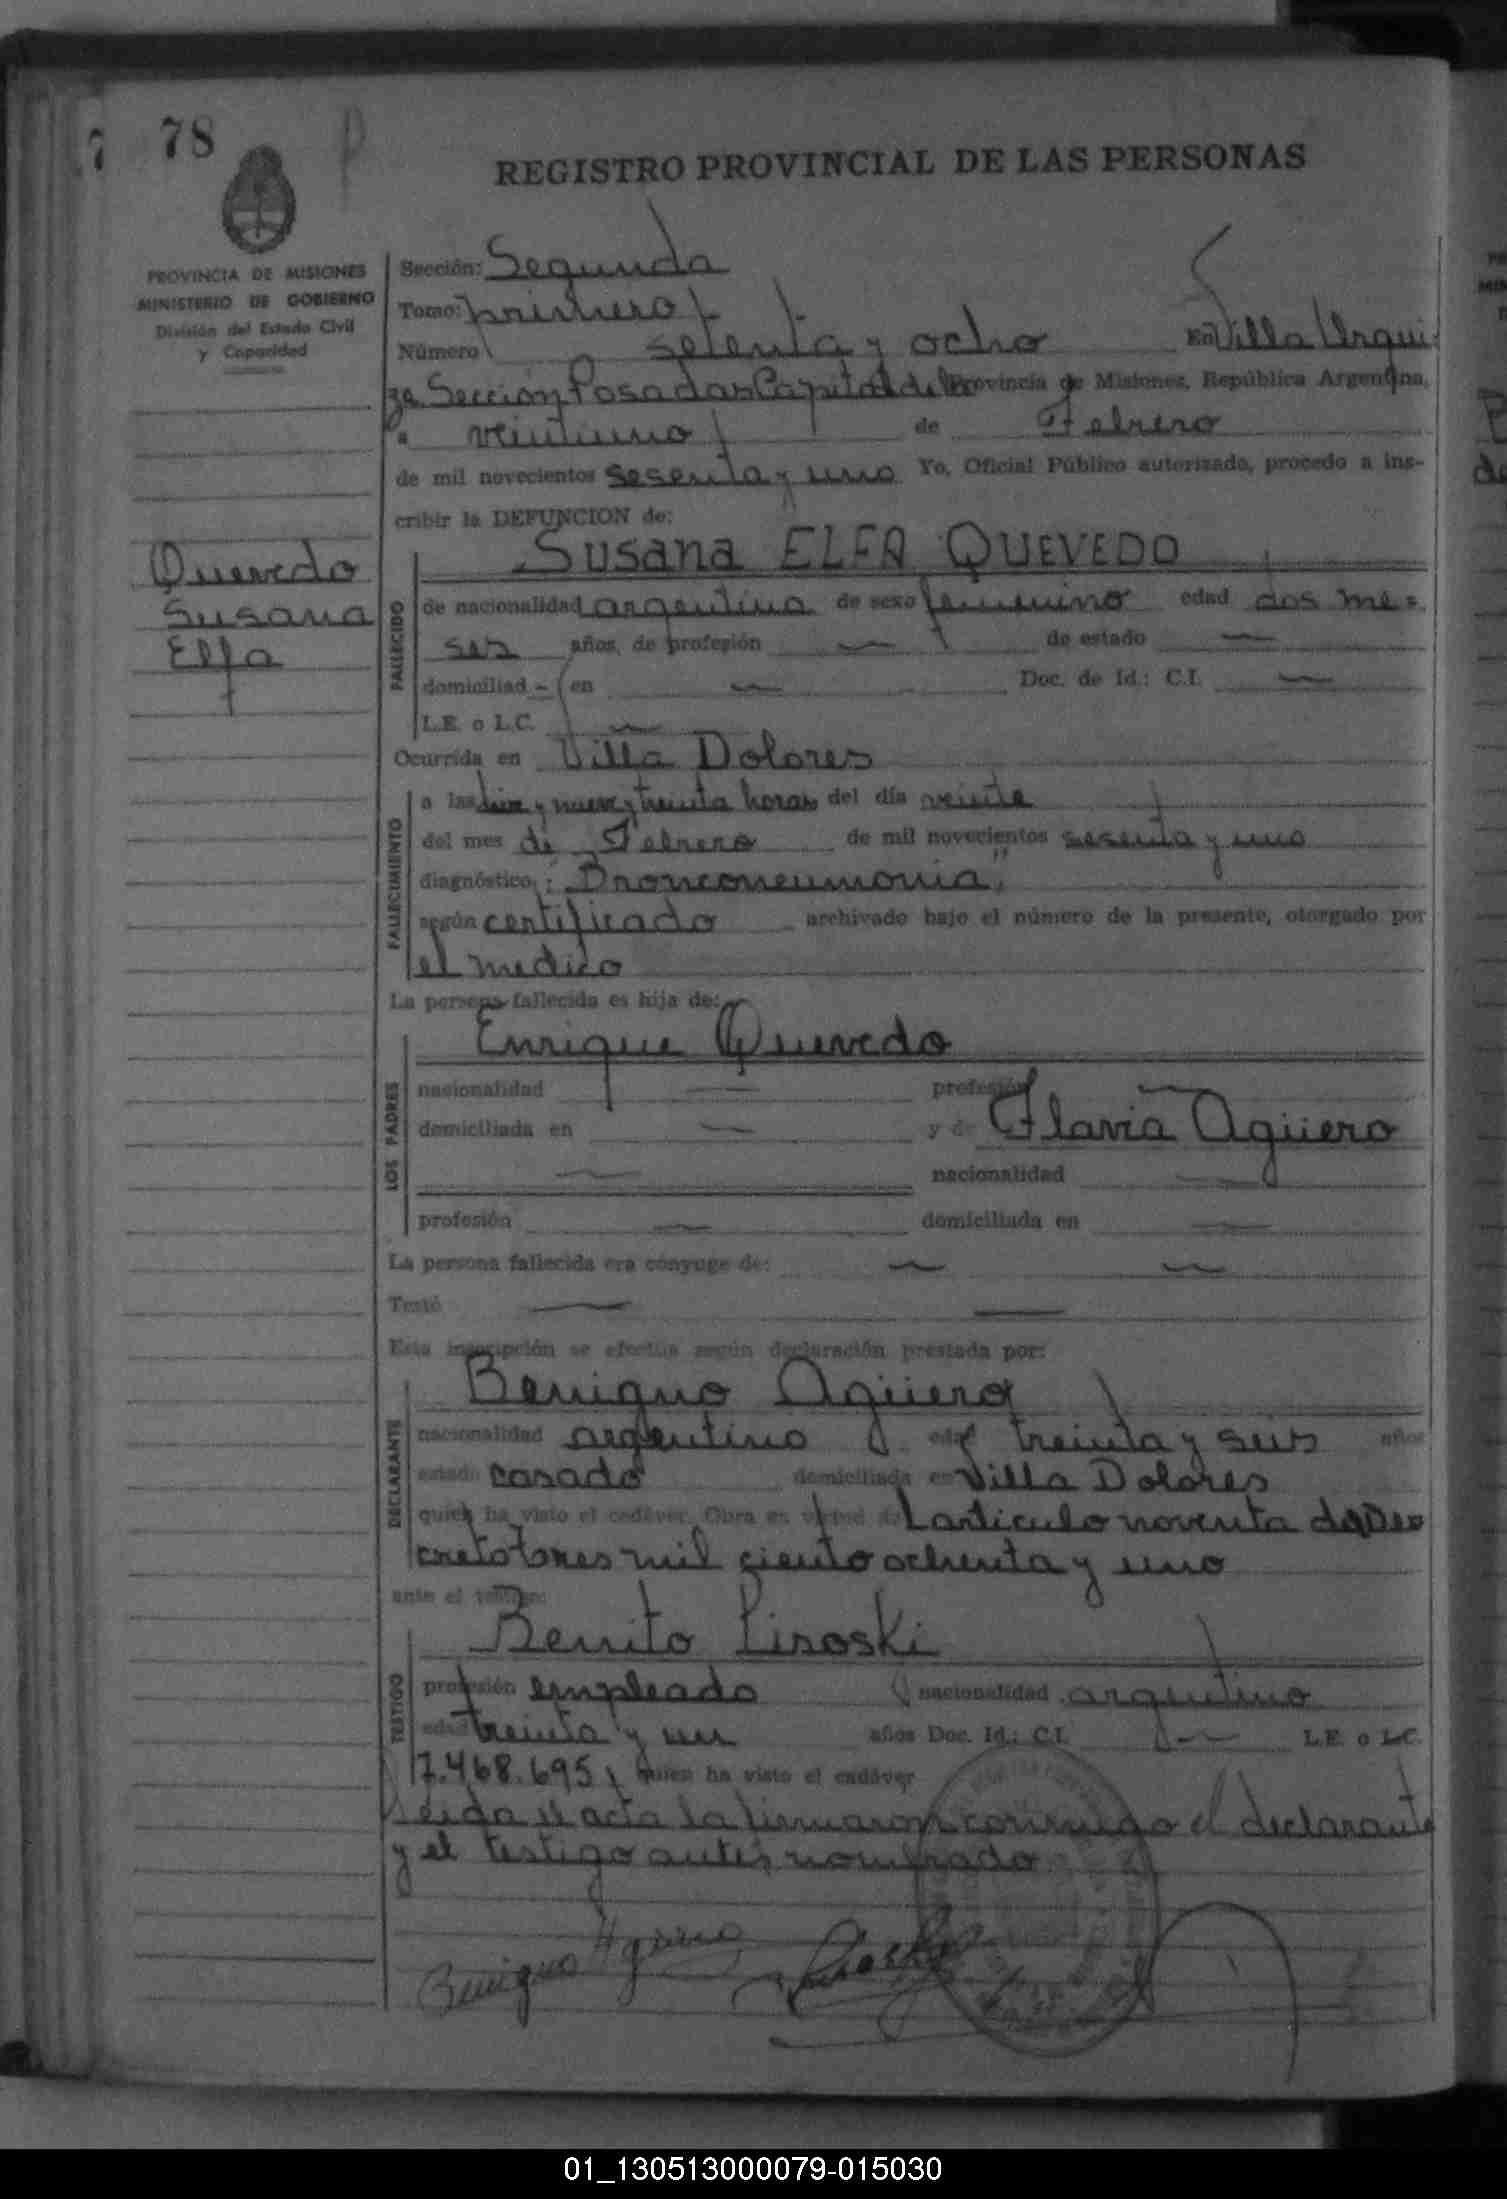 78
REGISTRO PROVINCIAL DE LAS PERSONAS
PROVINCIA DE MISIONES
MINISTERIO DE GOBIERNO
División del Estado Civil
y Capacidad
Quevedo
Susana
Elfa
Sección: Segunda
Tomo: primero
Número setenta y ocho En Villa Urqui
za Sección Posadas Capital de la Provincia de Misiones, República Argentina,
a veintiuno de Febrero
de mil novecientos sesenta y uno Yo, Oficial Público autorizado, procedo a ins-
cribir la DEFUNCION de:
Susana ELFA QUEVEDO
FALLECIDO
de nacionalidad argentina de sexo femenino edad dos me=
ses años, de profesión — de estado —
domiciliad - en — Doc. de Id.: C.I. —
L.E. o L.C. —
Ocurrida en Villa Dolores
FALLECIMIENTO
a las diez y nueve y treinta horas del día veinte
del mes de Febrero de mil novecientos sesenta y uno
diagnóstico: Bronconeumonia"
según certificado archivado bajo el número de la presente, otorgado por
el medico
La persona fallecida es hija de:
Enrique Quevedo
LOS PADRES
nacionalidad — profesión —
domiciliada en — y de Flavia Agüero
— nacionalidad —
profesión — domiciliada en —
La persona fallecida era cónyuge de: — —
Testó — —
Esta inscripción se efectúa según declaración prestada por:
Benigno Agüero
DECLARANTE
nacionalidad argentino edad treinta y seis años
estado casado domiciliada en Villa Dolores
quien ha visto el cadáver. Obra en virtud del articulo noventa del De
creto tres mil ciento ochenta y uno
ante el testigo:
Benito Liroski
TESTIGO
profesión empleado nacionalidad argentino
edad treinta y un años Doc. Id.: C.I. — L.E. o L.C.
7.468.695, quien ha visto el cadáver
Leida el acta la firmaron conmigo el declarante
y el testigo antes nombrado
Benigno Aguero
01_130513000079-015030